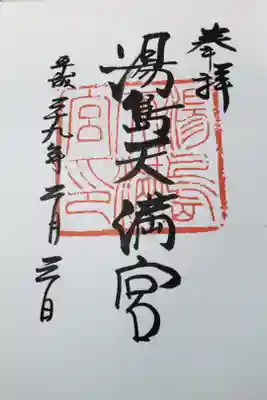 奉拝
湯島天満宮
平成二十九年二月三日